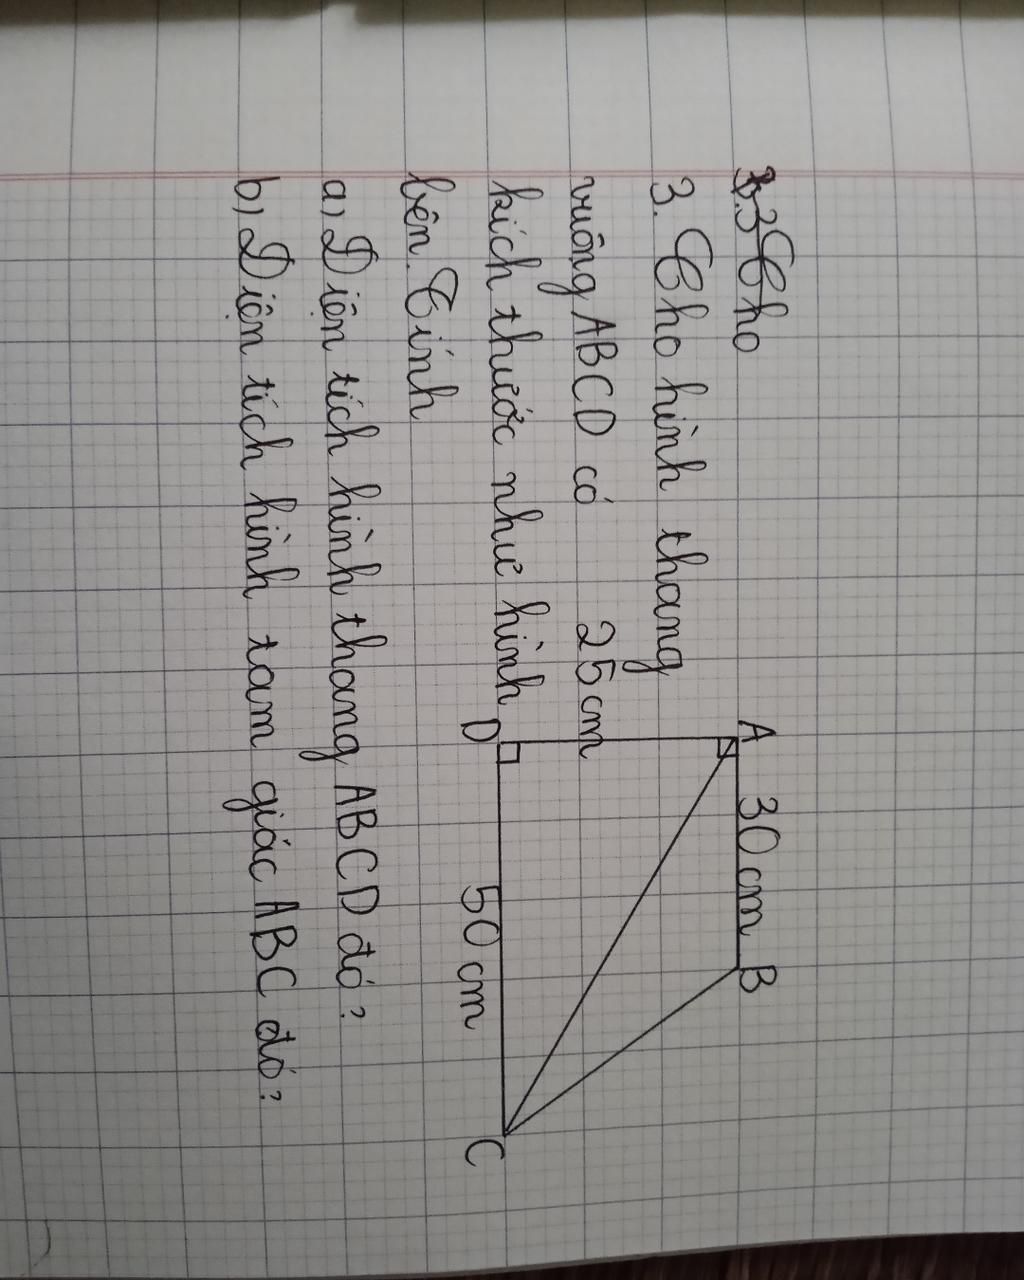 3.3 Cho
3. Cho hình thang
vuông ABCD có
kích thước như hình
bên. Tính
a) Diện tích hình thang ABCD đó?
b) Diện tích hình tam giác ABC đó?
A 30cm B
25cm
D 50 cm C